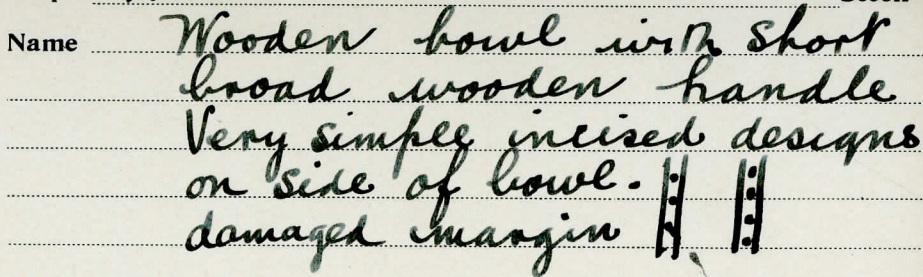 Name Wooden bowl with short
broad wooden handle
Very simple incised designs
on side of bowl.
damaged margin